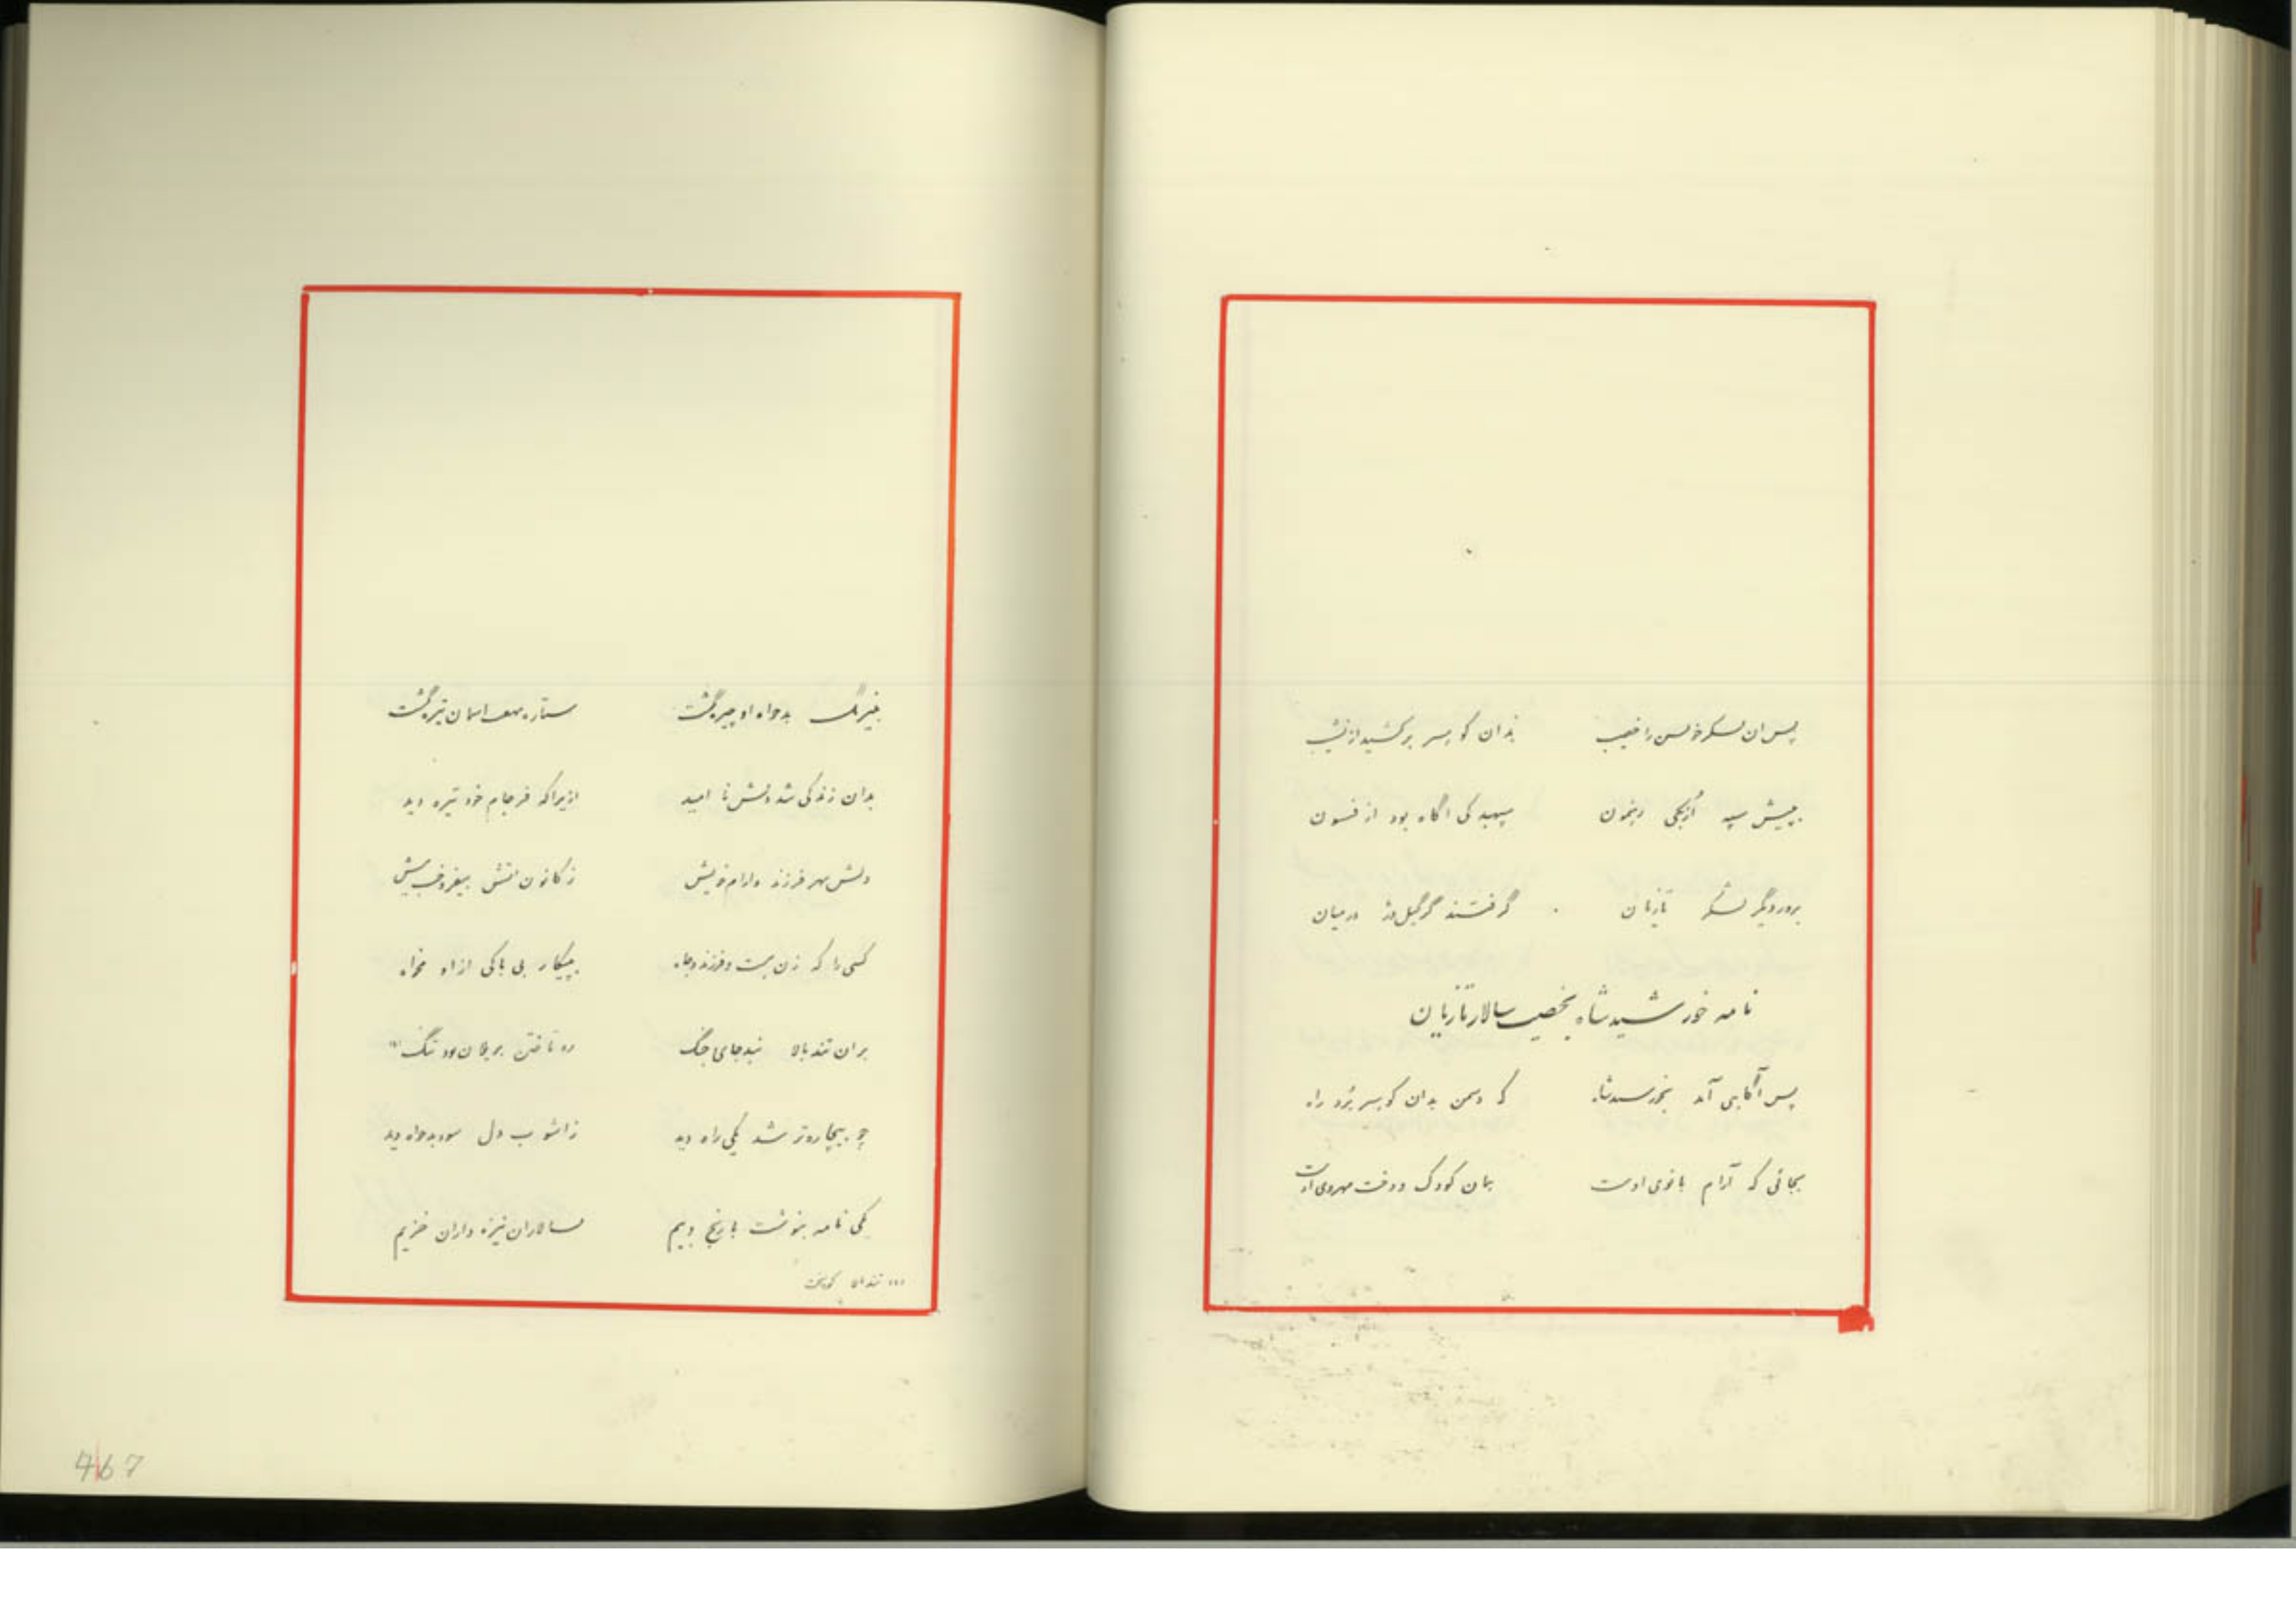 پس ان لسکر خویس را خصیب بدان کوهسر برکشید از نشیب
بپیش سپه ازبکی رهنمون سپهبد کی اگاه بود از فسون
بروز دگر لشکر تازیان گرفتند گرگیل دژ درمیان
نامه خورشیدشاه بخصیب سالار تازیان
پس آگاهی آمد بخورسیدشاه که دسمن بدان کوهسر برد راه
بجائی که آرام بانوی اوست بمان کودک و دخت مهروی اوست
بنیرنگ بدخواه او چیره گشت ستاره بهفت اسمان تیره گشت
بدان زندگی شد دلش نا امید ازیرا که فرجام خود تیره دید
دلش مهر فرزند و ارام خویش ز کانون اتش بیفروخت بیش
کسی را که زن هست و فرزند و جاه بپیکار بی باکی از او مخواه
بران تند بالا نبد جای جنگ ره تاختن بر یلان بود تنگ
چو بیچاره تر شد یکی راه دید ز اشوب دل سوی بدخواه دید
یکی نامه بنوشت با رنج و بیم بسالاران نیزه داران خزیم
تند بالا
467